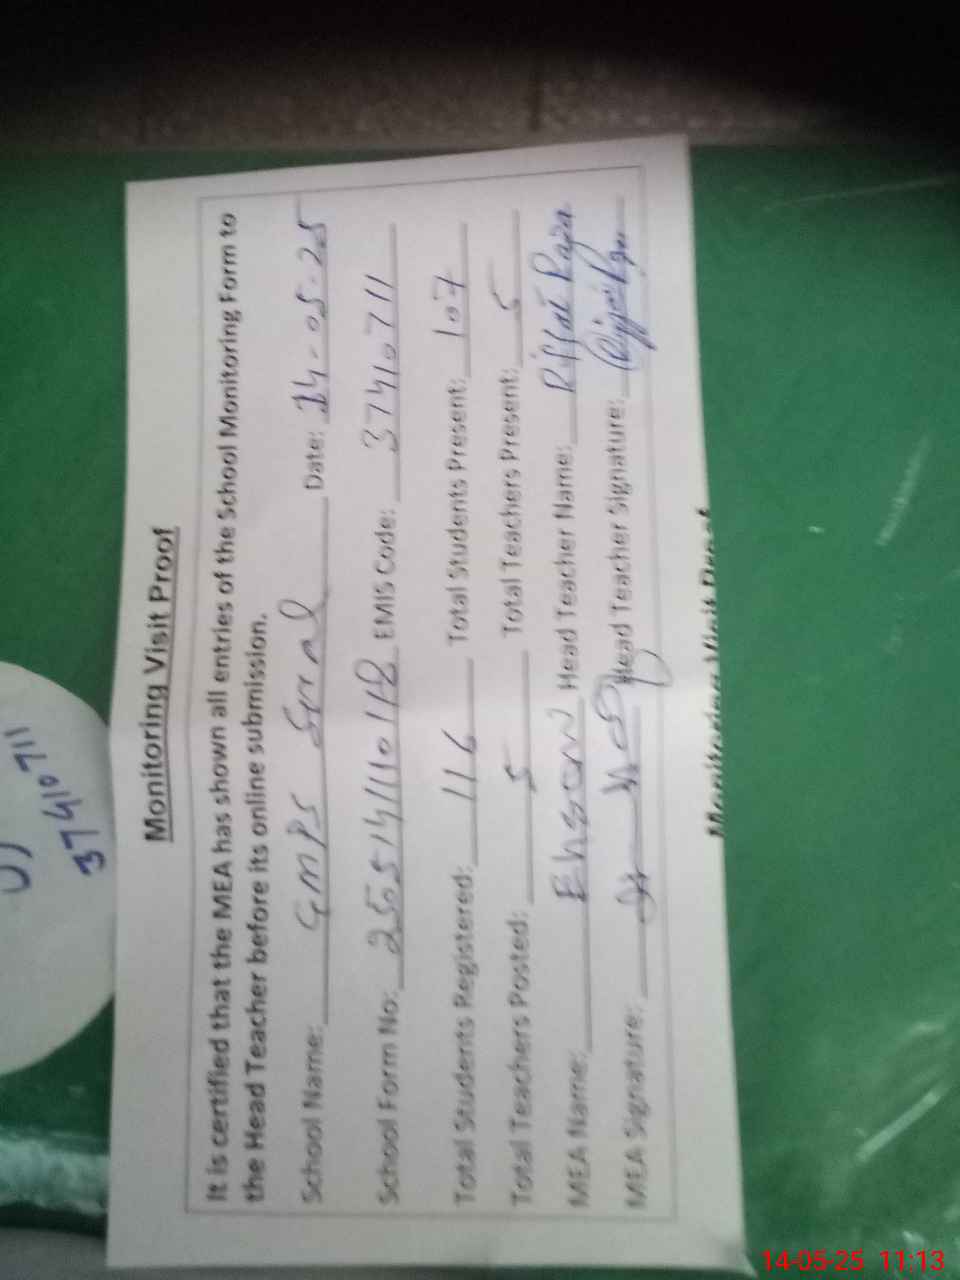 Monitoring Visit Proof
It is certified that the MEA has shown all entries of the School Monitoring Form to
the Head Teacher before its online submission.
School Name: GMPS Date: 14-05-25
School Form No: EMIS Code: 37410711
Total Students Registered: 116 Total Students Present: 107
Total Teachers Posted: 5 Total Teachers Present: 5
MEA Name: Ehsan Head Teacher Name: Riffat
MEA Signature: Head Teacher Signature:
Monitoring Visit Proof
37410711
14-05-25 11:13